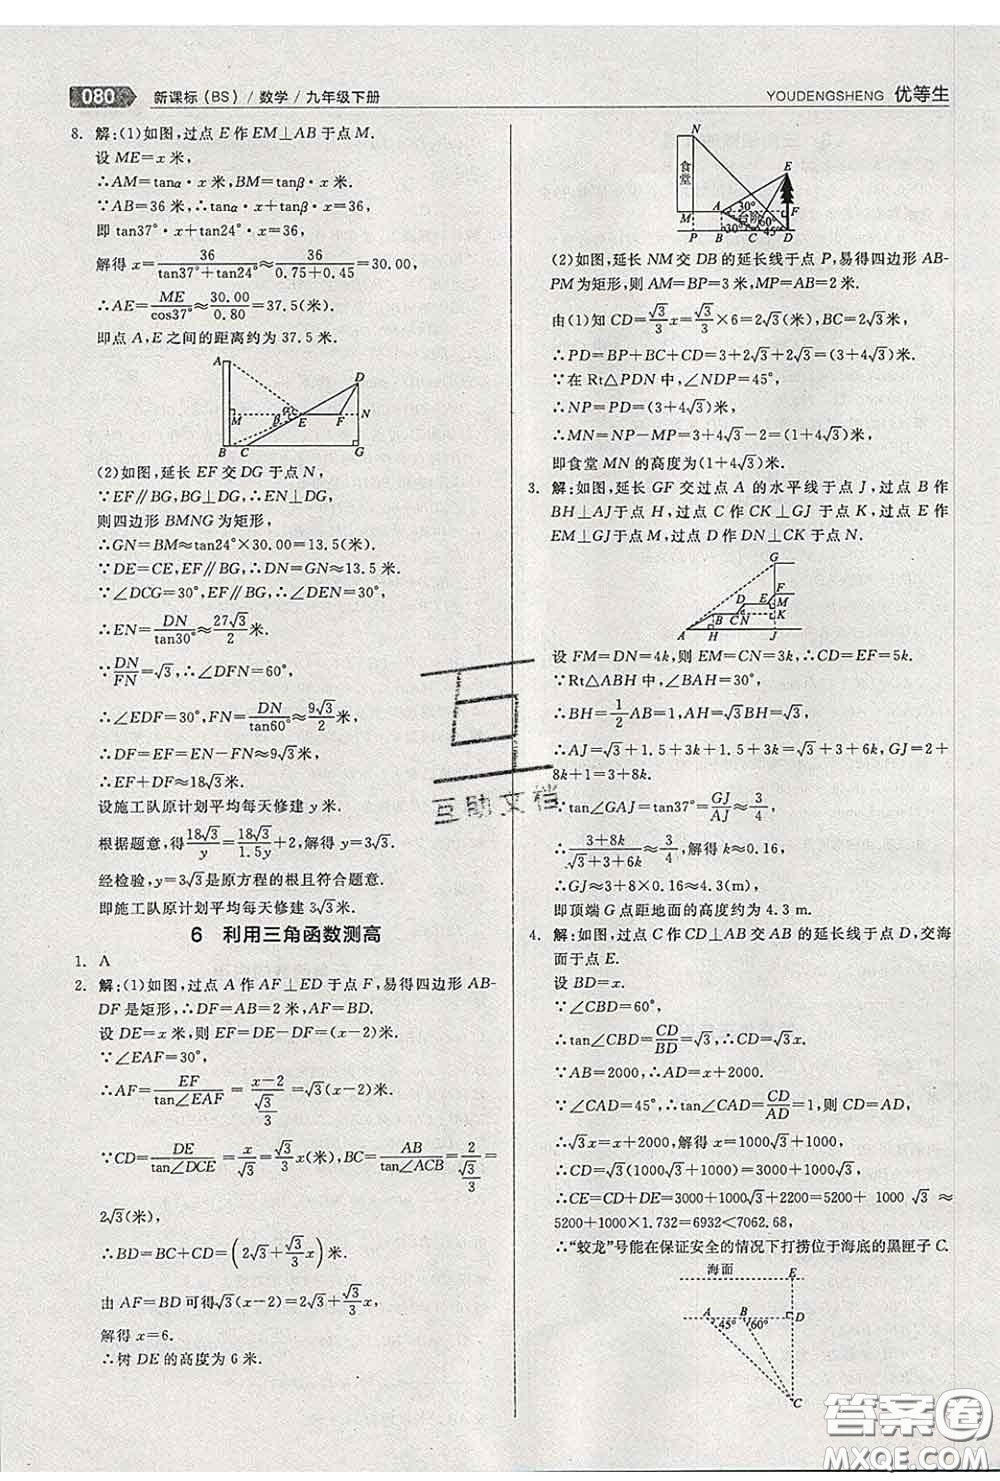 080 新课标(BS)/数学/九年级下册
YOUDENGSHENG 优等生
8. 解:(1)如图,过点 E 作 EM⊥AB 于点 M.
设 ME=x 米,
∴AM=tanα·x 米,BM=tanβ·x 米,
∵AB=36 米,∴tanα·x+tanβ·x=36,
即 tan37°·x+tan24°·x=36,
解得 x=36/(tan37°+tan24°)≈36/(0.75+0.45)=30.00,
∴AE=ME/cos37°≈30.00/0.80=37.5(米).
即点 A,E 之间的距离约为 37.5 米.
A D M α β E F N B C G
(2)如图,延长 EF 交 DG 于点 N,
∵EF∥BG,BG⊥DG,∴EN⊥DG,
则四边形 BMNG 为矩形,
∴GN=BM≈tan24°×30.00=13.5(米).
∵DE=CE,EF∥BG,∴DN=GN≈13.5 米.
∵∠DCG=30°,EF∥BG,∴∠DEN=30°,
∴EN=DN/tan30°≈27√3/2 米.
∵DN/FN=√3,∴∠DFN=60°,
∴∠EDF=30°,FN=DN/tan60°≈9√3/2 米,
∴DF=EF=EN-FN≈9√3 米,
∴EF+DF≈18√3 米.
设施工队原计划平均每天修建 y 米.
根据题意,得18√3/y=18√3/1.5y+2,解得 y=3√3.
经检验,y=3√3是原方程的根且符合题意.
即施工队原计划平均每天修建 3√3米.
6 利用三角函数测高
1. A
2. 解:(1)如图,过点 A 作 AF⊥ED 于点 F,易得四边形 AB-
DF 是矩形,∴DF=AB=2 米,AF=BD.
设 DE=x 米,则 EF=DE-DF=(x-2)米.
∵∠EAF=30°,
∴AF=EF/tan∠EAF=(x-2)/(√3/3)=√3(x-2)米.
∵CD=DE/tan∠DCE=x/√3=√3/3 x(米),BC=AB/tan∠ACB=2/(√3/3)=
2√3(米),
∴BD=BC+CD=(2√3+√3/3 x)米.
由 AF=BD 可得√3(x-2)=2√3+√3/3 x,
解得 x=6.
∴树 DE 的高度为 6 米.
N 食堂 E A 30° F M 台阶 60° 30° 45° P B C D
(2)如图,延长 NM 交 DB 的延长线于点 P,易得四边形 AB-
PM 为矩形,则 AM=BP=3 米,MP=AB=2 米.
由(1)知 CD=√3/3 x=√3/3×6=2√3(米),BC=2√3米,
∴PD=BP+BC+CD=3+2√3+2√3=(3+4√3)米.
∵在 Rt△PDN 中,∠NDP=45°,
∴NP=PD=(3+4√3)米,
∴MN=NP-MP=3+4√3-2=(1+4√3)米.
即食堂 MN 的高度为(1+4√3)米.
3. 解:如图,延长 GF 交过点 A 的水平线于点 J,过点 B 作
BH⊥AJ于点 H,过点 C 作 CK⊥GJ 于点 K,过点 E 作
EM⊥GJ于点 M,过点 D 作 DN⊥CK于点 N.
G F D E M B C N K A H J
设 FM=DN=4k,则 EM=CN=3k,∴CD=EF=5k.
∵Rt△ABH 中,∠BAH=30°,
∴BH=1/2 AB=1,AH=√3BH=√3,
∴AJ=√3+1.5+3k+1.5+3k=(√3+3+6k)米,GJ=2+
8k+1=(3+8k)米.
∴tan∠GAJ=tan37°=GJ/AJ≈3/4,
∴(3+8k)/(√3+3+6k)≈3/4,解得 k≈0.16,
∴GJ≈3+8×0.16≈4.3(m).
即顶端 G 点距地面的高度约为 4.3 m.
4. 解:如图,过点 C 作 CD⊥AB 交 AB 的延长线于点 D,交海
面于点 E.
设 BD=x.
∵∠CBD=60°,
∴tan∠CBD=tan60°=CD/BD=√3,∴CD=√3x.
∵AB=2000,∴AD=x+2000,
∵∠CAD=45°,∴tan∠CAD=CD/AD=1,则 CD=AD,
∴√3x=x+2000,解得 x=1000√3+1000,
∴CD=√3(1000√3+1000)=3000+1000√3,
∴CE=CD+DE=3000+1000√3+2200=5200+1000√3≈
5200+1000×1.732=6932<7062.68,
∴“蛟龙”号能在保证安全的情况下打捞位于海底的黑匣子 C.
海面 E A B 45° 60° D C
互助文档
答案圈
MXQE.COM